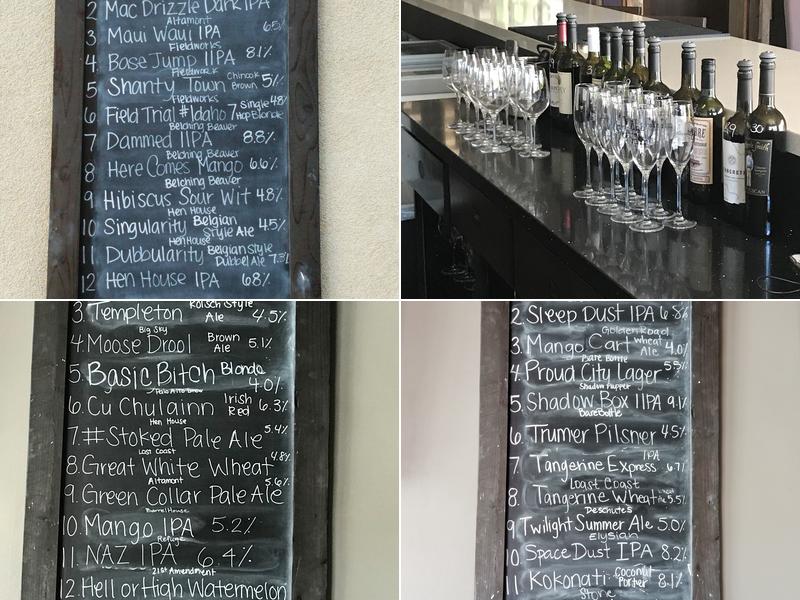 2 Mac Drizzle Dark IPA 6.5%
Altamont
3 Maui Waui IPA
Fieldworks
4 Base Jump IIPA 8.1%
Fieldwork
5 Shanty Town Chinook Brown 5%
Fieldworks
6 Field Trial #Idaho 7 Single Hop Blonde 4.8%
Belching Beaver
7 Dammed IIPA 8.8%
Belching Beaver
8 Here Comes Mango 6.6%
Belching Beaver
9 Hibiscus Sour Wit 4.8%
Hen House
10 Singularity Belgian Style Ale 4.5%
Hen House
11 Dubbularity Belgian Style Dubbel Ale 7.3%
12 Hen House IPA 6.8%
30
3. Templeton Kölsch Style Ale 4.5%
Big Sky
4. Moose Drool Brown Ale 5.1%
5. Basic Bitch Blonde 4.0%
Palo Alto Brew
6. Cu Chulainn Irish Red 6.3%
Hen House
7. #Stoked Pale Ale 5.4%
Lost Coast
8. Great White Wheat 4.8%
Altamont
9. Green Collar Pale Ale 5.6%
Barrel House
10. Mango IPA 5.2%
Refuge
11. NAZ IPA 6.4%
21st Amendment
12. Hell or High Watermelon
2. Sleep Dust IPA 6.8%
Golden Road
3. Mango Cart Wheat Ale 4.0%
Bare Bottle
4. Proud City Lager 5.5%
Shadow Puppet
5. Shadow Box IIPA 9.1%
Bare Bottle
6. Trumer Pilsner 4.5%
7 Tangerine Express IPA 6.7%
Lost Coast
8. Tangerine Wheat 5.5%
Deschutes
9 Twilight Summer Ale 5.0%
Elysian
10 Space Dust IPA 8.2%
11 Kokonati Coconut Porter 8.1%
Stone